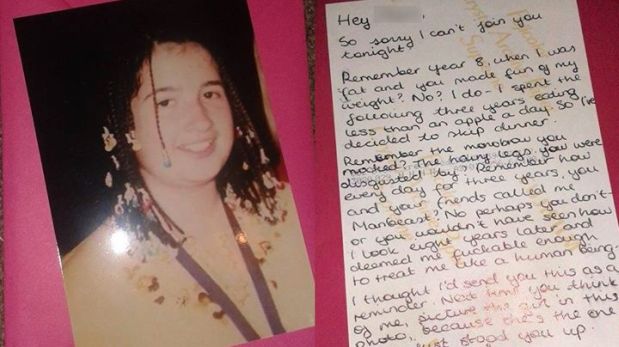 Hey
So sorry I can't join you
tonight.
Remember year 8, when I was
fat and you made fun of my
weight? No? I do - I spent the
following three years eating
less than an apple a day. So I've
decided to skip dinner.
Remember the monobrow you
mocked? The hairy legs you were
disgusted by? Remember how
every day for three years, you
and your friends called me
Manbeast? No perhaps you don't-
or you wouldn't have seen how
I look eight years later and
deemed me fuckable enough
to treat me like a human being.
I thought I'd send you this as a
reminder. Next time you think
of me, picture the girl in this
photo, because she's the one
just stood you up.